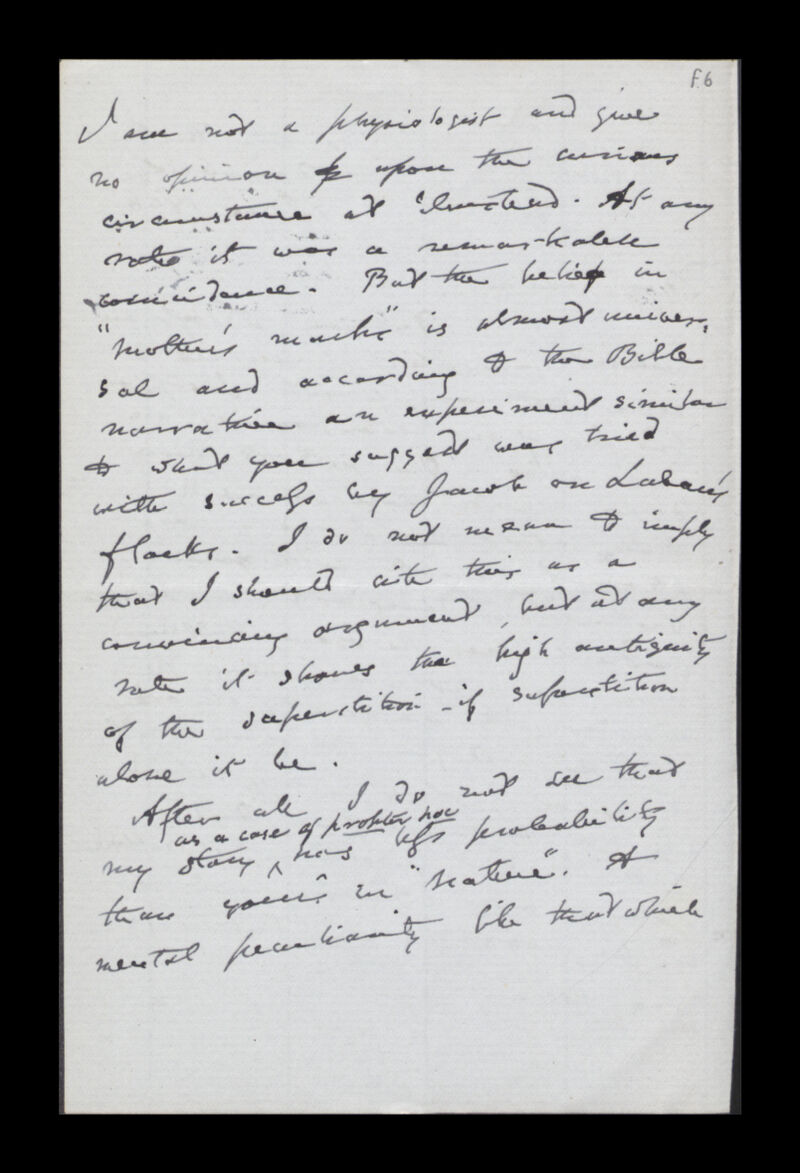 f6
I am not a physiologist and give
no opinion upon the curious
circumstance at . At any
rate it was a remarkable
coincidence. But the belief in
"mother's marks" is almost univer-
sal and according to the Bible
narrative an experiment similar
to what you suggest was tried
with success by Jacob on Laban's
flocks. I do not mean to imply
that I should cite this as a
convincing argument, but at any
rate it shows the high antiquity
of the superstition – if superstition
alone it be.
After all I do not see that
as a case of propter hoc
my story ^ has less probability
than yours in "Nature". A
mental peculiarity like that which